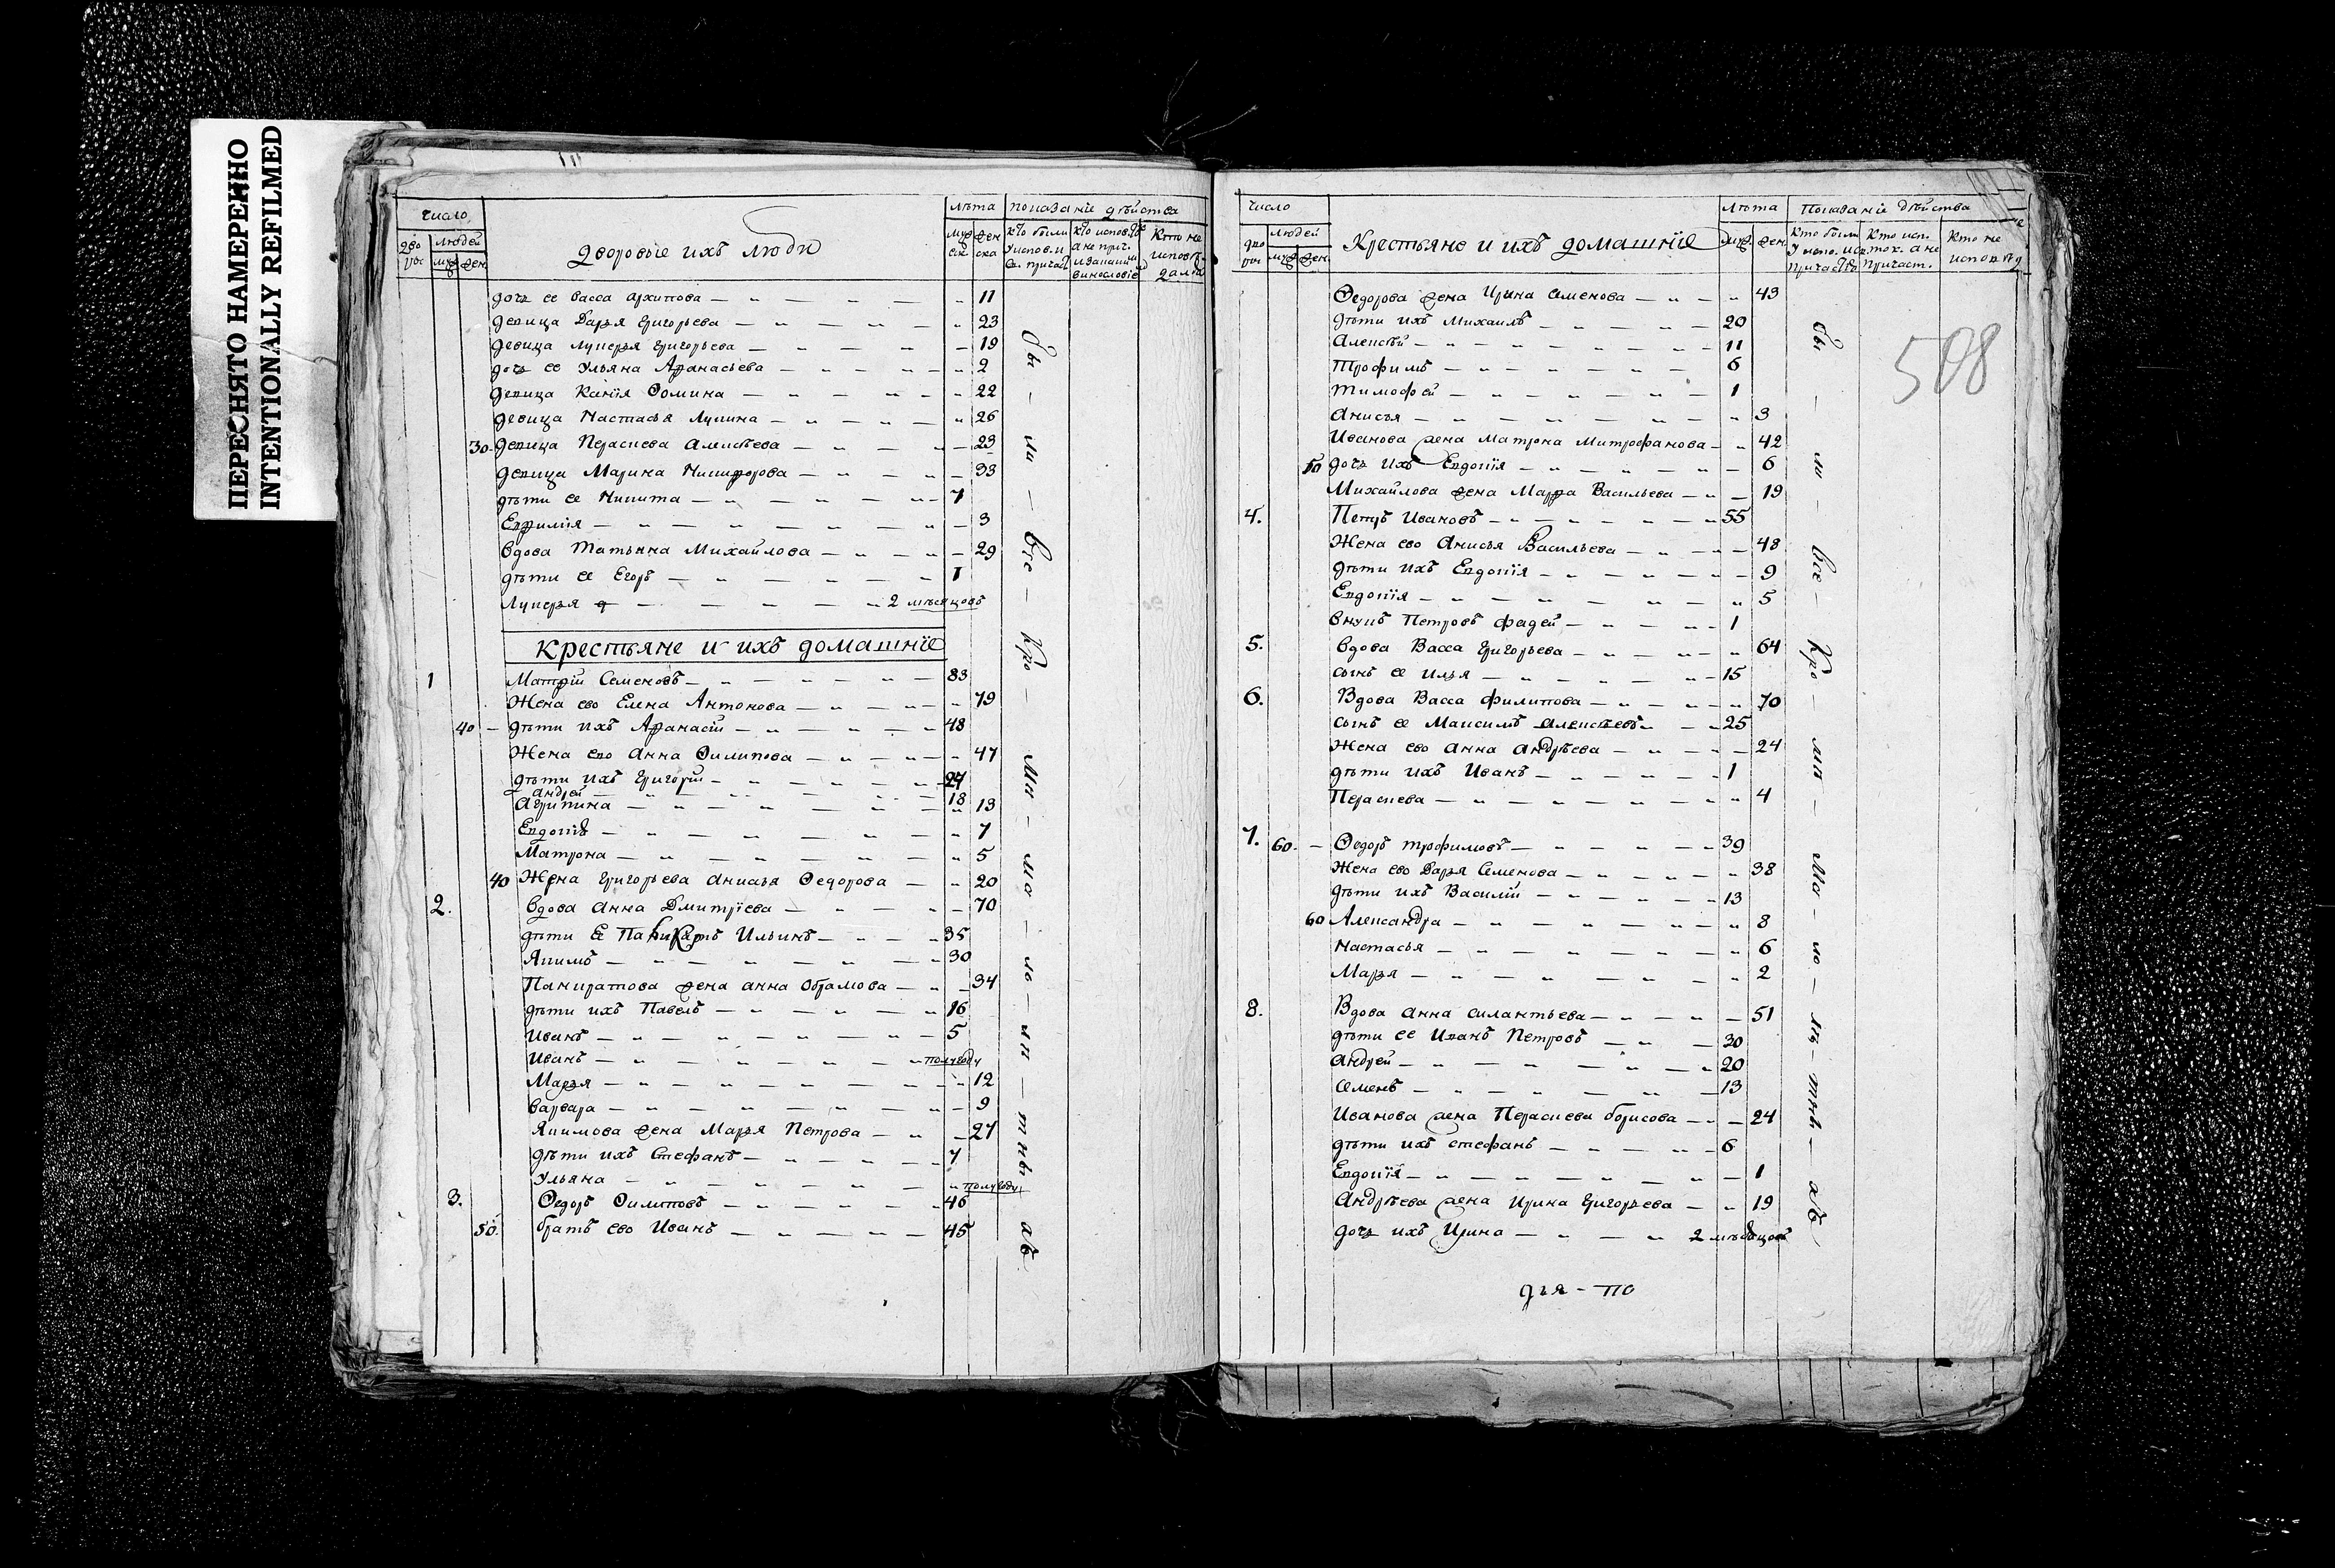 ПЕРЕСНЯТО НАМЕРЕННО
INTENTIONALLY REFILMED
число
людей
муж жен
дворовые ихъ люди
лѣта
муж ска
жен ска
показаніе дѣйства
дочь ее васса архипова 11
девица Дарья григорьева 23
девица лукерья григорьева 19
дочь ее Ульяна Афанасьева 2
девица Ксенія Ѳомина 22
девица Настасья Лукина 26
30 девица Параскева алексѣева 23
девица Марина Никифорова 33
дѣти ее Никита 7
Ефимія 3
вдова Татьяна Михайлова 29
дѣти ее Егоръ 1
Лукерья 2 мѣсяцовъ
крестьяне и ихъ домашніе
1 Матфій Семеновъ 83
Жена ево Елена Антонова 79
40 дѣти ихъ Афанасій 48
Жена ево Анна Ѳилипова 47
дѣти ихъ григорій 27
андрей 18
Агрипина 13
Евдокія 7
Матрона 5
40 Жена григорьева анисья Ѳедорова 20
2. вдова анна Дмитріева 70
дѣти Ее Панкратъ Ильинъ 35
Якимъ 30
Панкратова жена анна Абрамова 34
дѣти ихъ Павелъ 16
Иванъ 5
Иванъ полугоду
Марья 12
варвара 9
Якимова жена Марья Петрова 27
дѣти ихъ Стефанъ 7
Ульяна полугоду
3. Ѳедоръ Ѳилиповъ 46
50. братъ ево Иванъ 45
бы – ли – все – кро – ми – ма – ло – лѣ – тнѣ – ав
число
людей
муж жен
Крестьяне и ихъ домашніе
лѣта
муж. жен.
Показаніе дѣйства
508
Ѳедорова жена Ирина семенова 43
дѣти ихъ Михаилъ 20
Алексѣй 11
Трофимъ 6
тимофей 1
анисья 3
Иванова жена Матрона Митрофанова 42
50 дочь ихъ Евдокія 6
Михайлова жена Марфа Васильева 19
4. Петръ Ивановъ 55
Жена ево Анисья Васильева 48
дѣти ихъ Евдокія 9
Евдокія 5
внукъ Петровъ фадей 1
5. вдова Васса григорьева 64
сынъ ее илья 15
6. Вдова Васса филипова 70
сынъ ее Максимъ алексѣевъ 25
Жена ево анна андрѣева 24
дѣти ихъ Иванъ 1
Параскева 4
7. 60. Ѳедоръ трофимовъ 39
Жена ево Дарья Семенова 38
дѣти ихъ Василій 13
60 Александра 8
Настасья 6
Марья 2
8. Вдова анна силантьева 51
дѣти ее Иванъ Петровъ 30
андрей 20
семенъ 13
Иванова жена Параскева борисова 24
дѣти ихъ стефанъ 6
Евдокія 1
Андрѣева жена Ирина григорьева 19
дочь ихъ Ирина 2 мѣсяцовъ
бы – ли – все – кро – ми – ма – ло – лѣ – тнѣ – ав